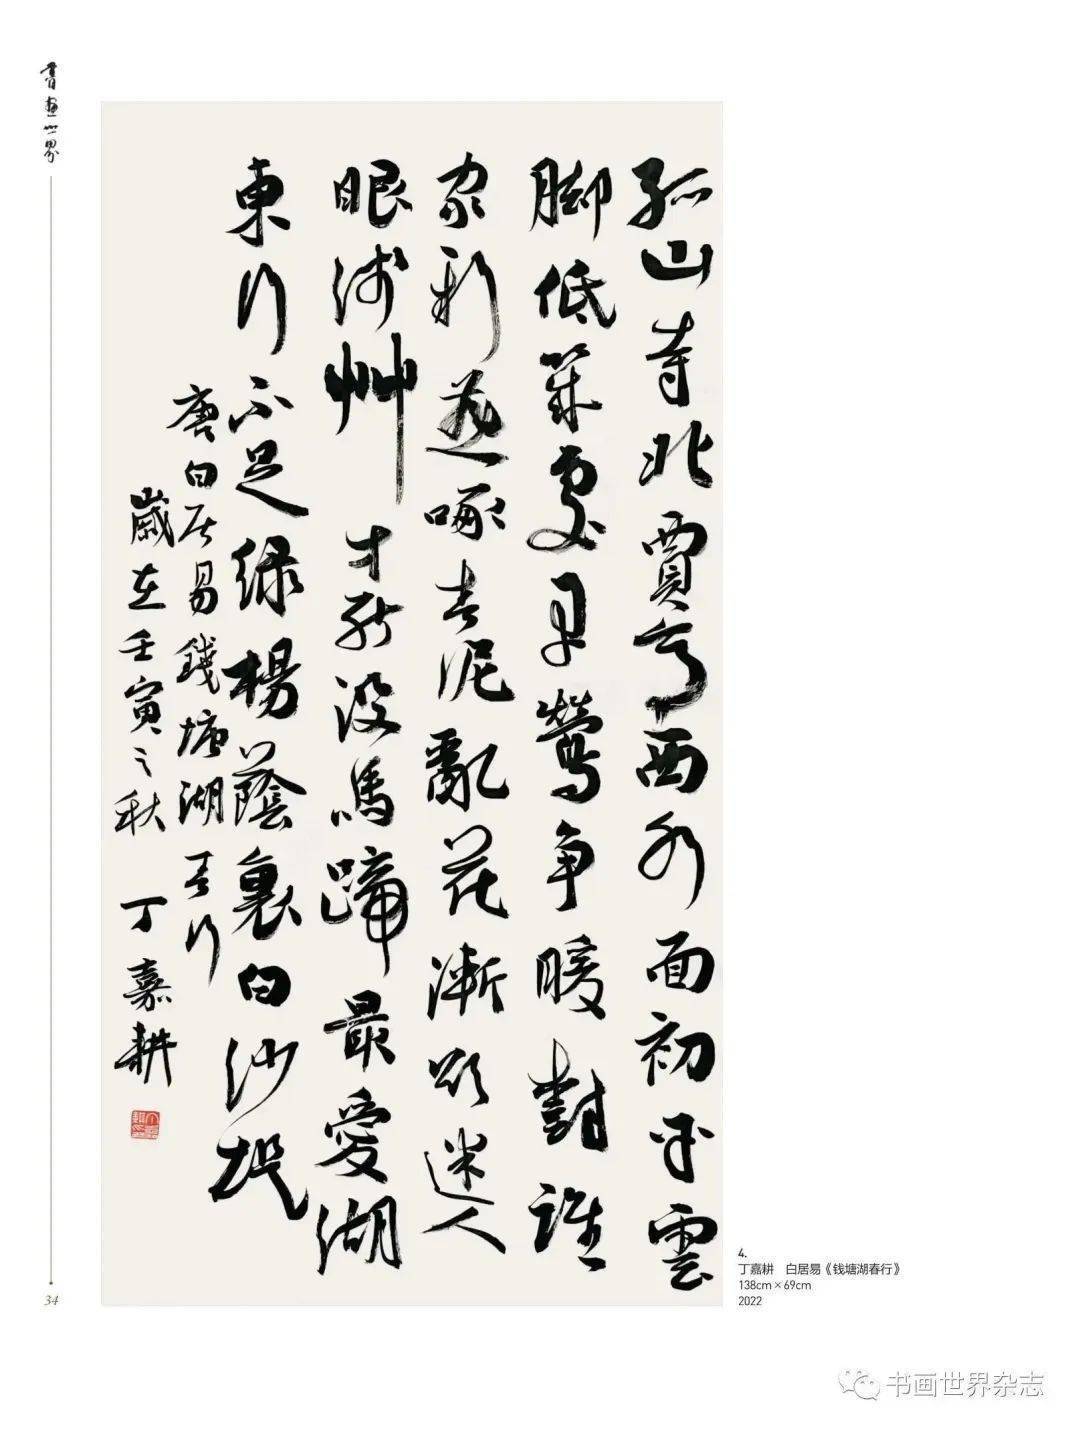 書畫世界
孤山寺北賈亭西水面初平雲
脚低幾處早鶯争暖樹誰
家新燕啄春泥亂花漸欲迷人
眼浅艸才能没馬蹄最愛湖
東行不足绿楊蔭裏白沙堤
唐白居易錢塘湖春行
歲在壬寅之秋 丁嘉耕
34
4.
丁嘉耕 白居易《钱塘湖春行》
138cm×69cm
2022
书画世界杂志